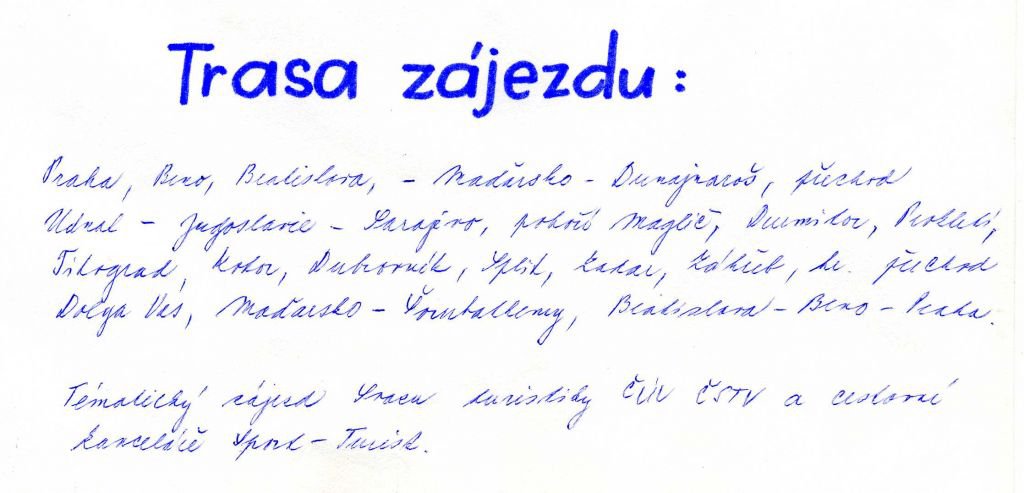 Trasa zájezdu:
Praha, Brno, Bratislava, - Maďarsko - Dunajvaroš, přechod
Udval - Jugoslavie - Sarajevo, pohoří Maglič, Durmitor, Prokletí,
Titograd, Kotor, Dubrovník, Split, Zadar, Záhřeb, hr. přechod
Dolga Vás, Maďarsko - Šombathely, Bratislava - Brno - Praha.
Tématický zájezd Svazu turistiky ČÚV ČSTV a cestovní
kanceláře Sport-Turist.